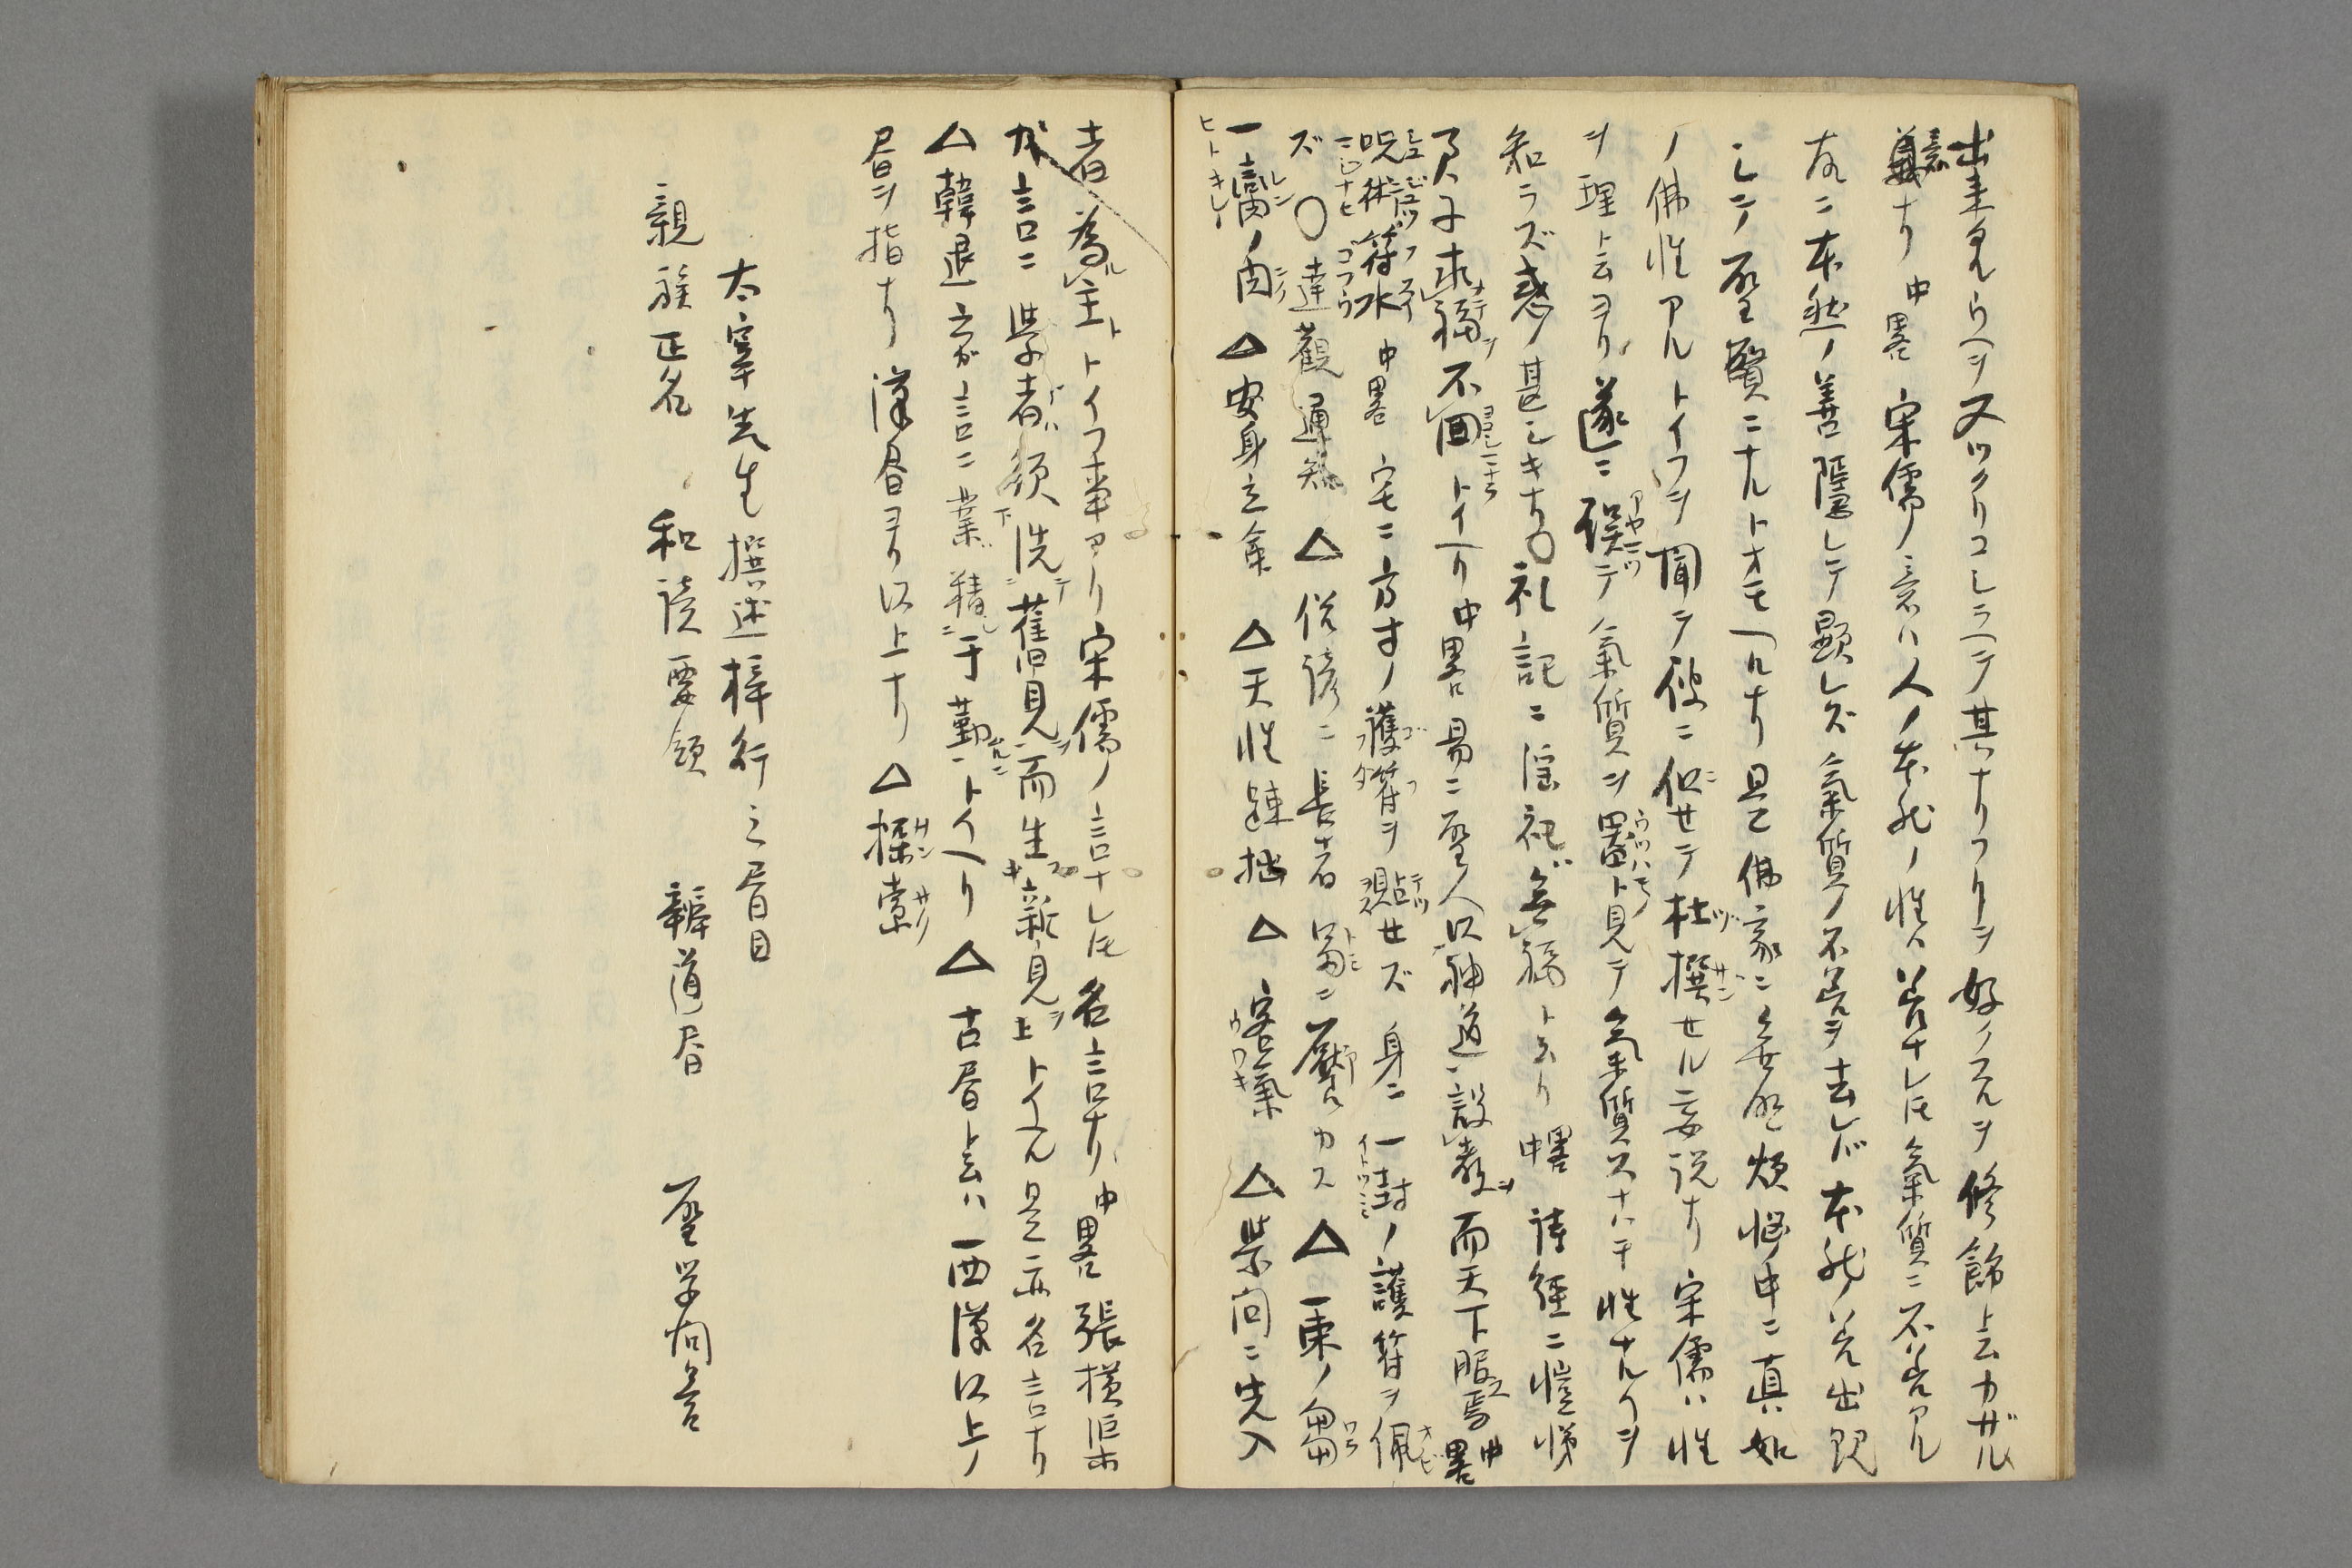 出来タルウヘヲ又ツクリコシラヘテ其ナリフリヲ好クスルヲ修飾ト云カザル
意ナリ中畧宋儒ノ意ハ人ノ本然ノ性ハ善ナレ𪜈氣質ニ不善アル
故ニ本然ノ善隱レテ顕レズ氣質ノ不善ヲ去レバ本然ノ善出現
シテ聖賢ニナルトオモヘルナリ是佛家ニ無明煩悩ノ中ニ真如
ノ佛性アルトイフヲ聞テ彼ニ似セテ杜撰セル妄説ナリ宋儒ハ性
ヲ理ト云ヨリ遂ニ誤テ氣質ヲ器ト見テ氣質スナハチ性ナルヿヲ
知ラズ惑ノ甚シキナリ〇礼記ニ淫祀無福ト云リ中畧詩經ニ愷悌
君子求福不回トイヘリ中畧易ニ聖人以神道設教而天下服焉中畧
呪術符水中畧宅ニ方寸ノ護符ヲ貼セズ身ニ一封ノ護符ヲ佩
ズ〇達觀通知△俗諺ニ長者冨ニ䕃カス△一束ノ芻
一臠ノ肉△安身立命△天性踈拙△客氣△学問ニ先入
者為主トイフ事アリ宋儒ノ言ナレ𪜈名言ナリ中畧張横渠
ガ言ニ学者須洗舊見而生新見トイヘル是亦名言ナリ
△韓退之ガ言ニ業精于勤トイヘリ△古書ト云ハ西漢以上ノ
書ヲ指ナリ漢書ヨリ以上ナリ△探索
太宰先生撰述梓行之書目
親族正名 和読要領 辨道書 聖学問答